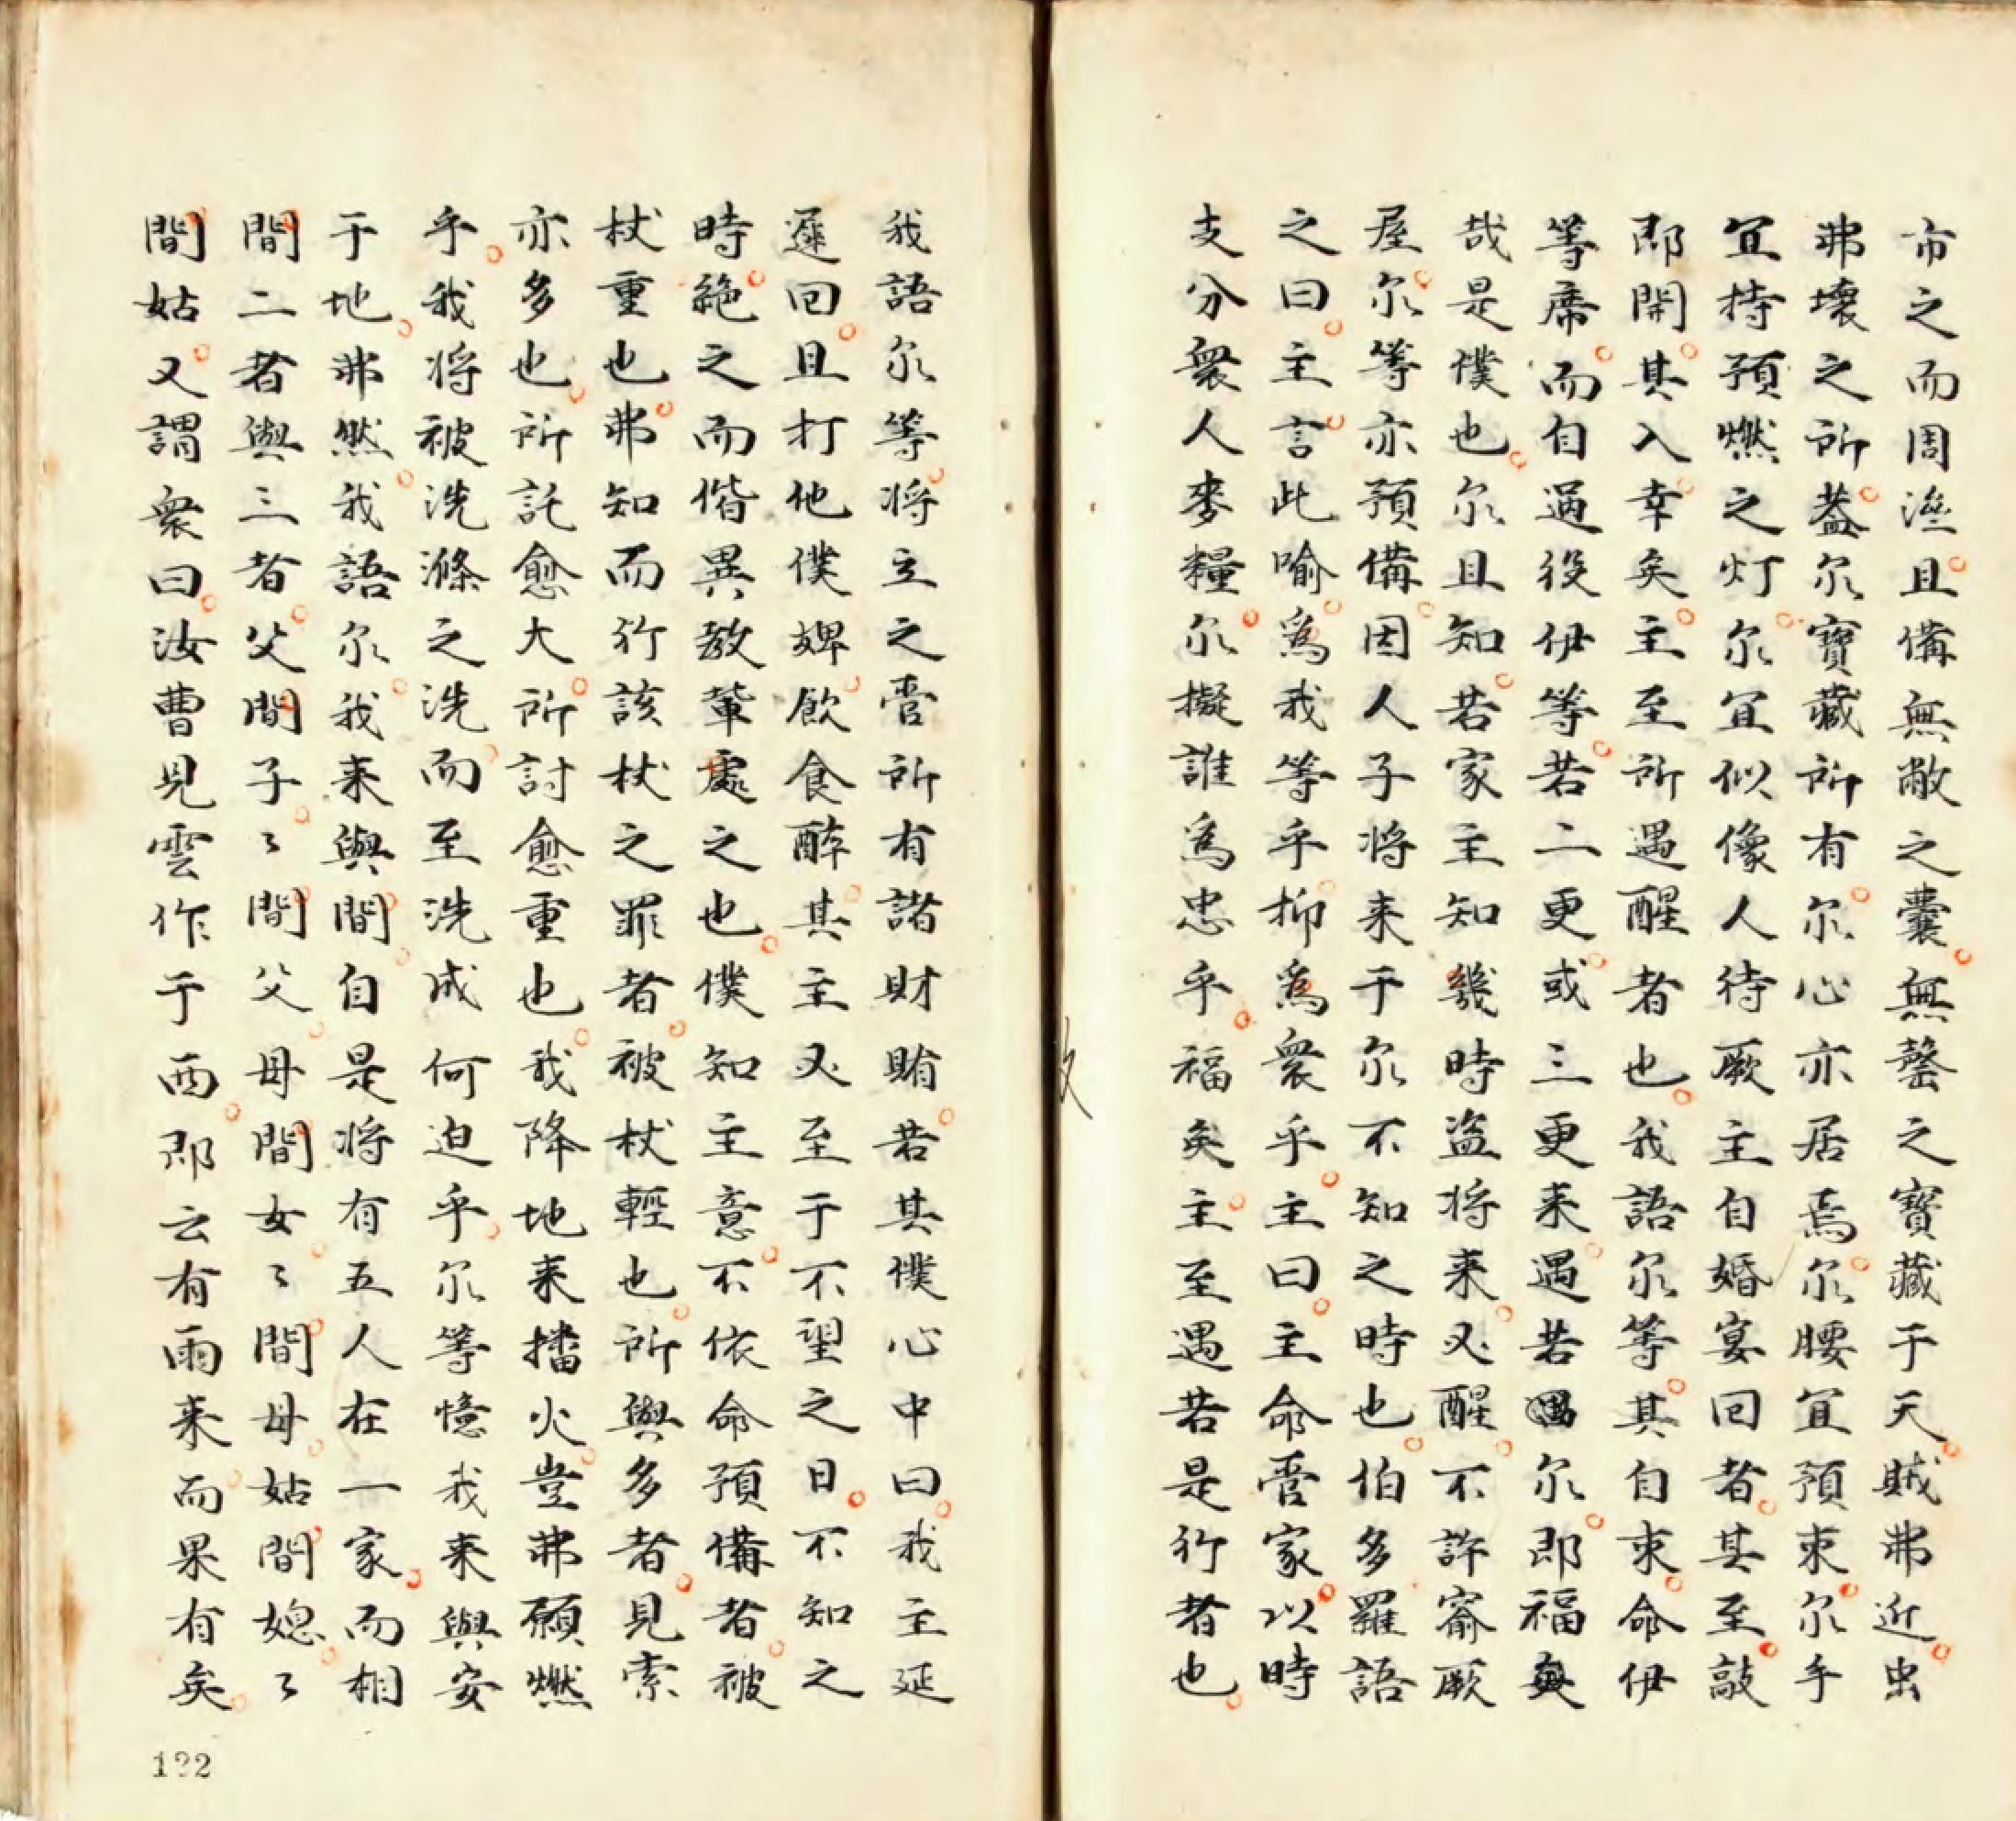 市之而周濟且備無敝之囊無罄之寶藏于天賊弗近虫
弗壞之所蓋尔寶藏所有尔心亦居焉尔腰宜預束尔手
宜持預燃之灯尔宜似像人待厥主自婚宴回者其至敲
即開其入幸矣主至所遇醒者也我語尔等其自束命伊
等席而自過役伊等若二更或三更来遇若尔即福矣
哉是僕也尔且知若家主知幾時盜將来必醒不許窬厥
屋尔等亦預備因人子將来于尔不知之時也伯多羅語
之曰主言此喻為我等乎抑為衆乎主曰主命管家以時
支分衆人麥糧尔擬誰為忠乎福矣主至遇若是行者也
我語尔等將立之管所有諸財賄若其僕心中曰我主延
遲回且打他僕婢飲食醉其主必至于不望之日不知之
時絶之而偕異教輩處之也僕知主意不依命預備者被
杖重也弗知而行該杖之罪者被杖輕也所與多者見索
亦多也所託愈大所討愈重也我降地来播火豈弗願燃
乎我将被洗滌之洗而至洗成何迫乎尔等憶我来與安
于地弗然我語尔我来與間自是将有五人在一家而相
間二者與三者父間子〻間父母間女〻間母姑間媳〻
間姑又謂衆曰汝曹見雲作于西即云有雨来而果有矣
122